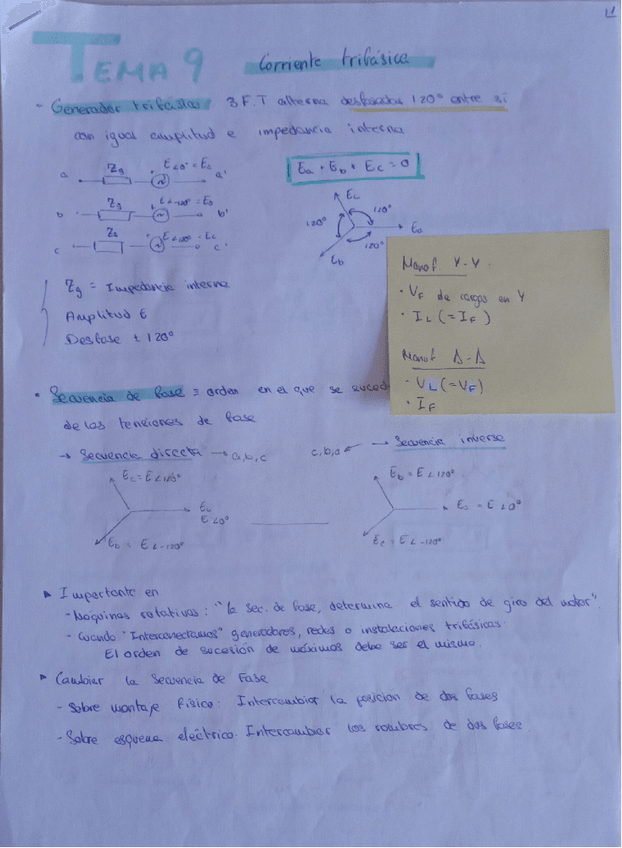 TEMA 9 Corriente trifásica
- Generador trifásico: 3 F.T alterna desfasadas 120° entre sí
con igual amplitud e impedancia interna
a Zg E∠0° = Ea a'
b Zg E∠-120° = Eb b'
c Zg E∠120° = Ec c'
Ea + Eb + Ec = 0
Ec
120° 120°
Ea
120°
Eb
Zg = Impedancia interna
Amplitud E
Desfase ± 120°
Monof Y-Y
• VF de cargas en Y
• IL (= IF)
Monof Δ-Δ
• VL (= VF)
• IF
• Secuencia de fase ≡ orden en el que se suced
de las tensiones de fase
→ Secuencia directa → a,b,c
c,b,a → Secuencia inversa
Ec = E∠120°
Ea
E∠0°
Eb = E∠-120°
Eb = E∠120°
Ea = E∠0°
Ec = E∠-120°
▶ Importante en
- Máquinas rotativas: "la sec. de fase, determina el sentido de giro del motor".
- Cuando "Interconectamos" generadores, redes o instalaciones trifásicas:
El orden de sucesión de máximos debe ser el mismo.
▶ Cambiar la Secuencia de Fase
- Sobre montaje físico: Intercambiar la posicion de dos fases
- Sobre esquema eléctrico. Intercambiar los nombres de dos fases